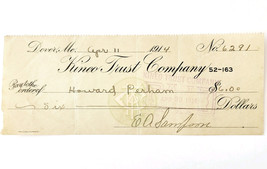 Dover, Me. Apr 11 1914 No. 6291
Kineo Trust Company 52-163
Pay to the order of Howard Perham $6.00
Six Dollars
E A Sampson